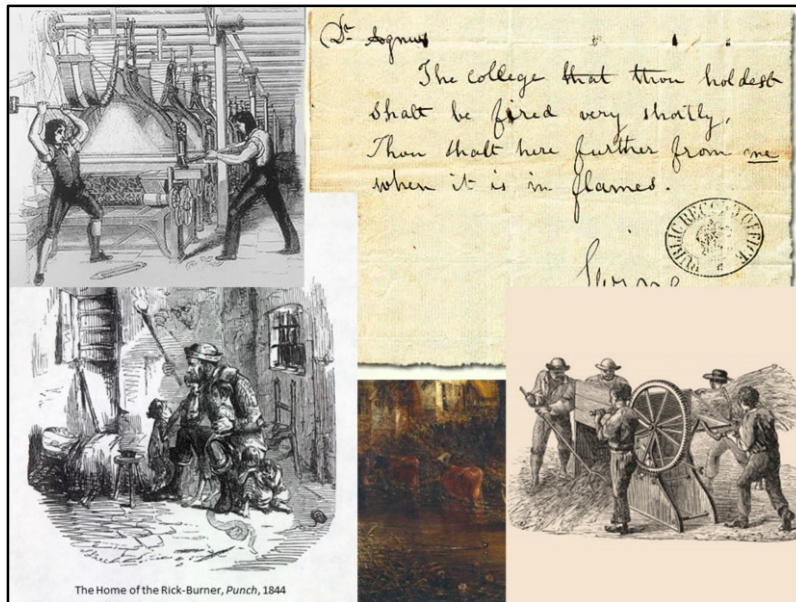 The college that thou holdest
shalt be fired very shortly.
Thou shalt here further from me
when it is in flames.
PUBLIC RECORD OFFICE
The Home of the Rick-Burner, Punch, 1844